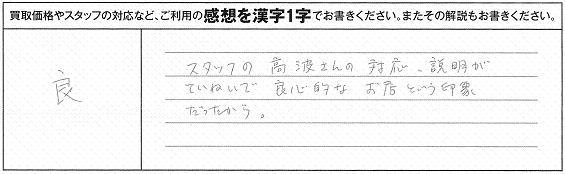 買取価格やスタッフの対応など、ご利用の感想を漢字1字でお書きください。またその解説もお書きください。
良
スタッフの高波さんの対応、説明が
ていねいで良心的なお店という印象
だったから。